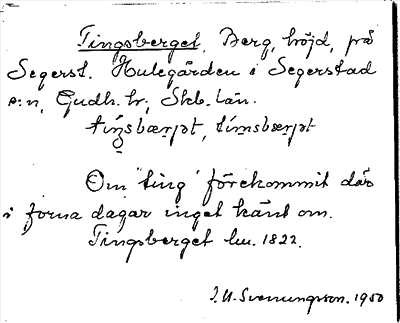 Tingsberget, Berg, höjd, på
Segerst. Hulegården i Segerstad
s:n, Gudh. hr, Skb. län.
tíŋsbærjət, tímsbærjət
Om "ting" förekommit där
i forna dagar inget känt om.
Tingsberget lm. 1822.
J. U. Svenungsson. 1950